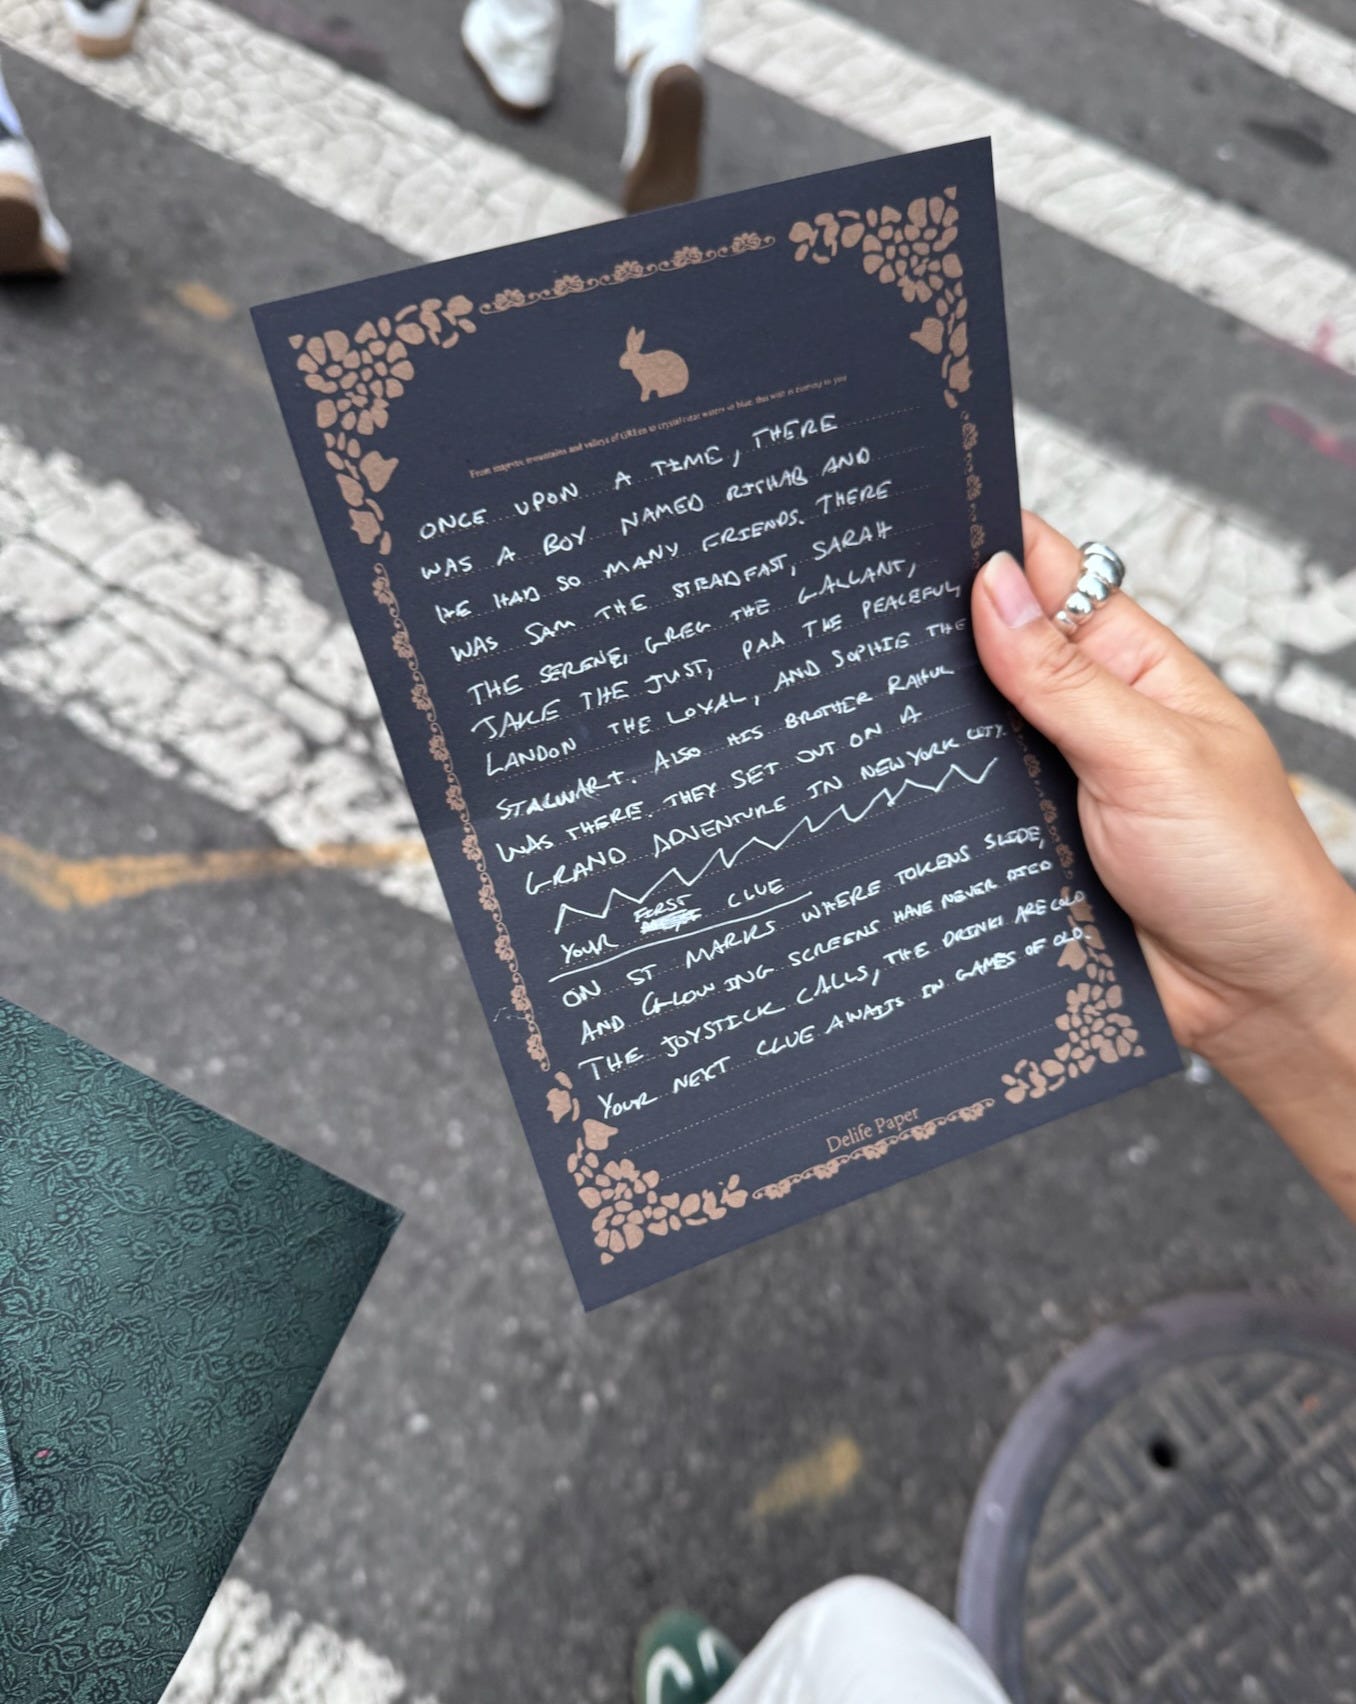 From majestic mountains and valleys of GREEn to crystal clear waters so blue, this wish is coming to you
ONCE UPON A TIME, THERE
WAS A BOY NAMED RISHAB AND
HE HAD SO MANY FRIENDS. THERE
WAS SAM THE STEADFAST, SARAH
THE SERENE, GREG THE GALLANT,
JAKE THE JUST, PAA THE PEACEFUL
LANDON THE LOYAL, AND SOPHIE THE
STALWART. ALSO HIS BROTHER RAHUL
WAS THERE. THEY SET OUT ON A
GRAND ADVENTURE IN NEW YORK CITY.
YOUR FIRST CLUE
ON ST MARKS WHERE TOKENS SLIDE,
AND GLOWING SCREENS HAVE NEVER DIED
THE JOYSTICK CALLS, THE DRINKS ARE COLD
YOUR NEXT CLUE AWAITS IN GAMES OF OLD.
Delife Paper